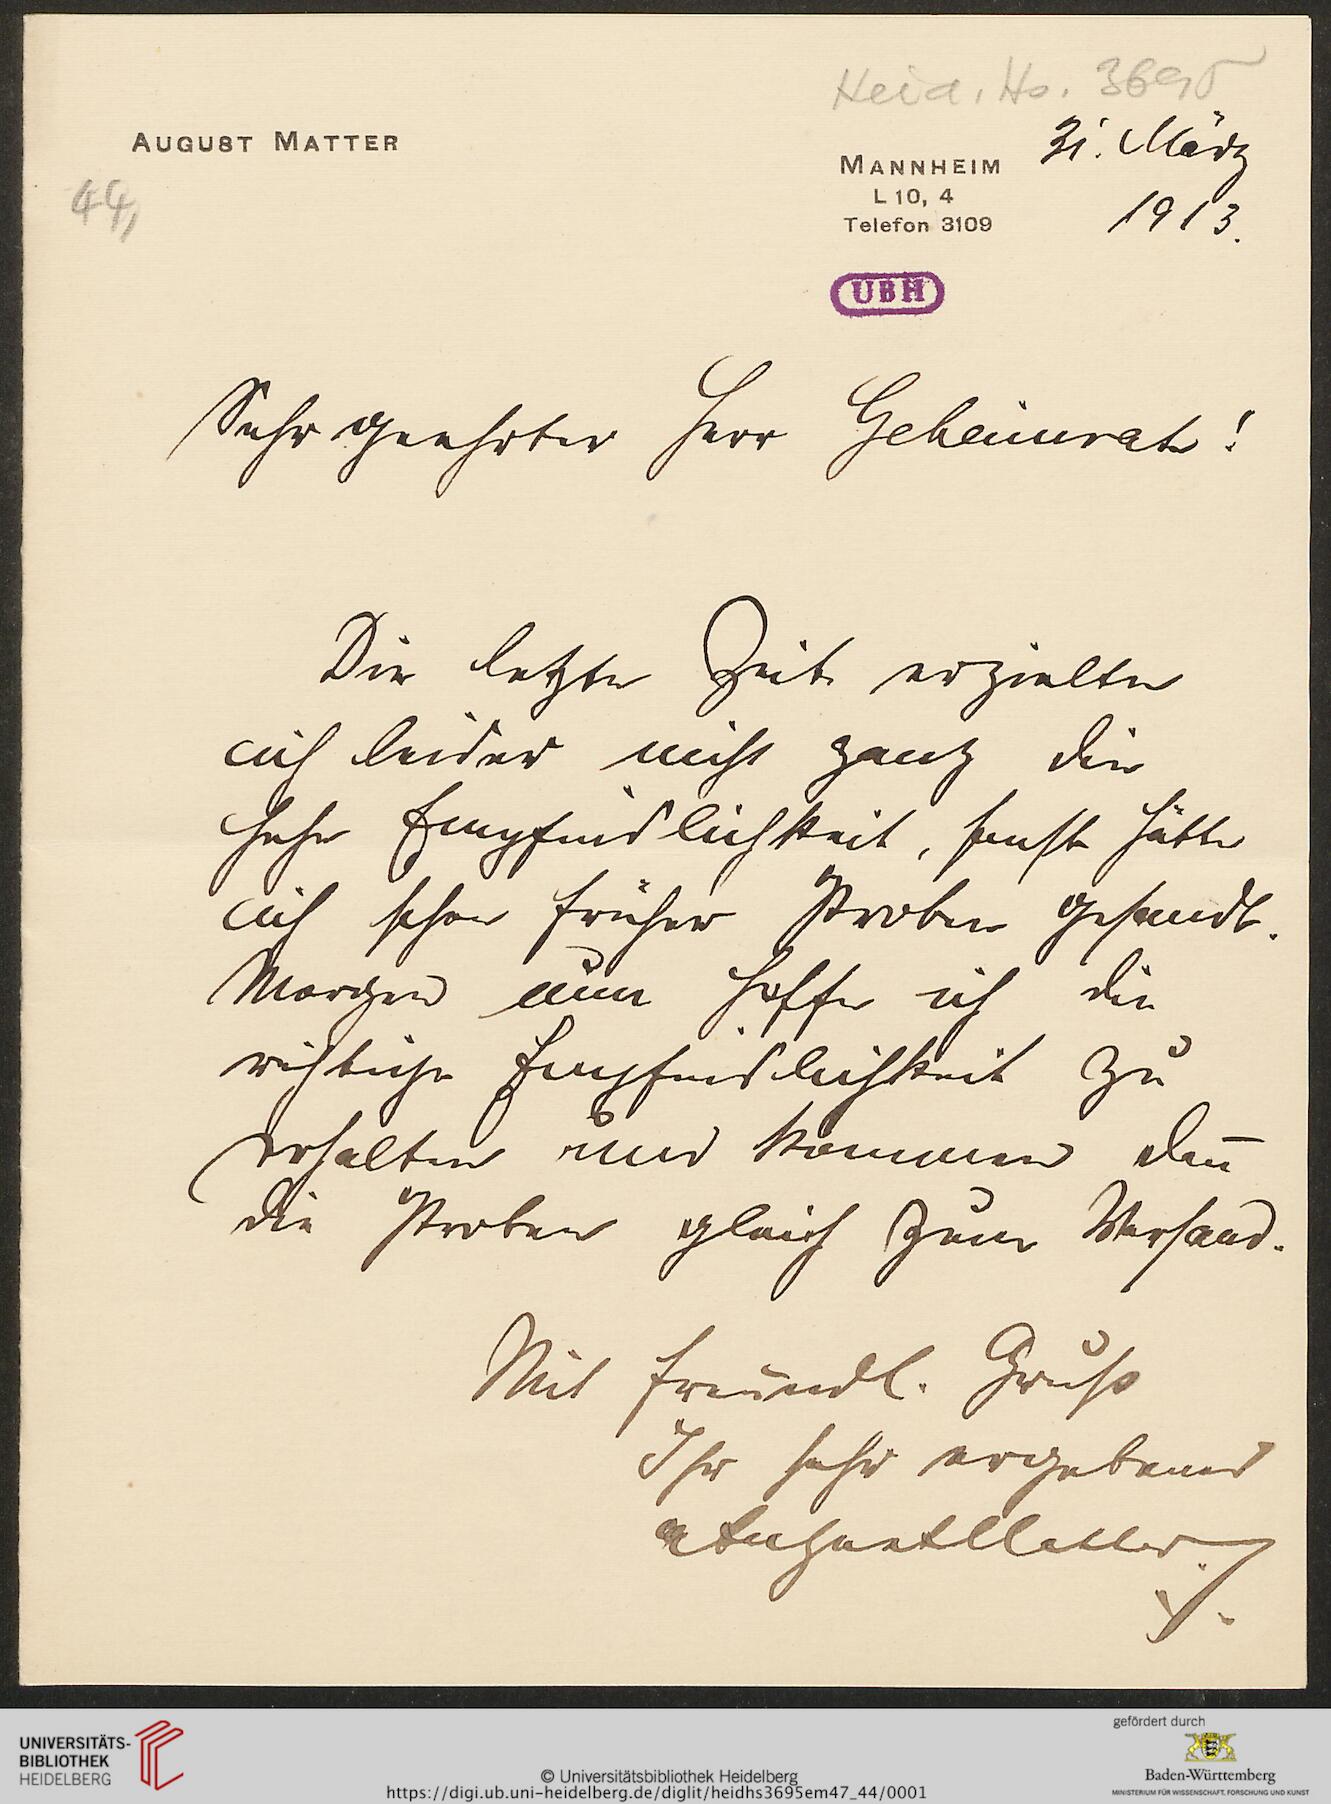 Heid. Hs. 3695
AUGUST MATTER
31. März
MANNHEIM
L 10, 4
1913.
Telefon 3109
44,
UBH
Sehr geehrter Herr Geheimrat!
Die letzte Zeit erzielte
ich leider nicht ganz die
hohe Empfindlichkeit, sonst hätte
ich schon früher Proben gesandt.
Morgen nun hoffe ich die
richtige Empfindlichkeit zu
erhalten und kommen dan̅
die Proben gleich zum Versand.
Mit freundl. Gruß
Ihr sehr ergebener
August Matter
UNIVERSITÄTS-
BIBLIOTHEK
HEIDELBERG
© Universitätsbibliothek Heidelberg
https://digi.ub.uni-heidelberg.de/diglit/heidhs3695em47_44/0001
gefördert durch
Baden-Württemberg
MINISTERIUM FÜR WISSENSCHAFT, FORSCHUNG UND KUNST